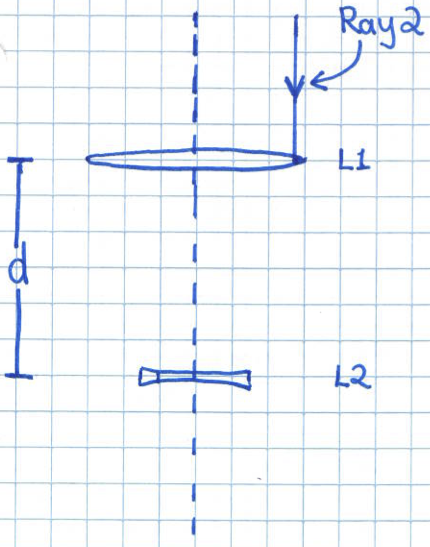 Ray 2
L1
d
L2